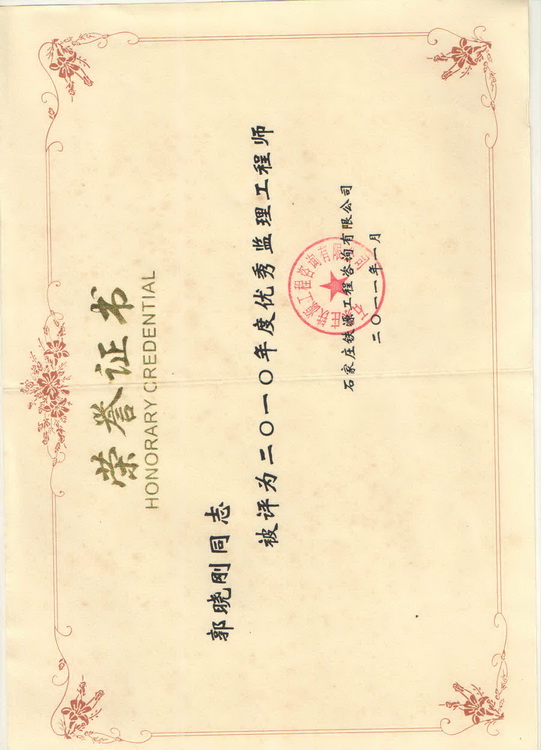 荣誉证书
HONORARY CREDENTIAL
郭晓刚同志
被评为二〇一〇年度优秀监理工程师
石家庄铁源工程咨询有限公司
二〇一一年一月